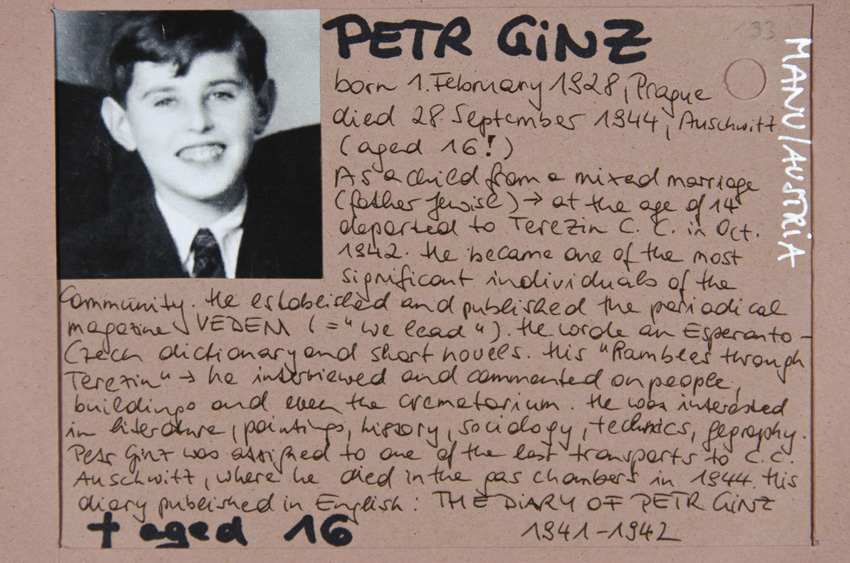 133
PETR GiNZ
born 1. February 1928, Prague
died 28. September 1944, Auschwitz
(aged 16!)
As a child from a mixed marriage
(father Jewish) → at the age of 14
deported to Terezin C. C. in Oct.
1942. He became one of the most
significant individuals of the
Community. He established and published the periodical
magazine VEDEM (= "we lead"). He wrote an Esperanto-
Czech dictionary and short novels. His "Rambles through
Terezin" → he interviewed and commented on people,
buildings and even the crematorium. He was interested
in literature, paintings, history, sociology, technics, geography.
Petr Ginz was assigned to one of the last transports to C. C.
Auschwitz, where he died in the gas chambers in 1944. His
diary published in English: THE DIARY OF PETR GiNZ
1941-1942
† aged 16
MANU/AUSTRiA